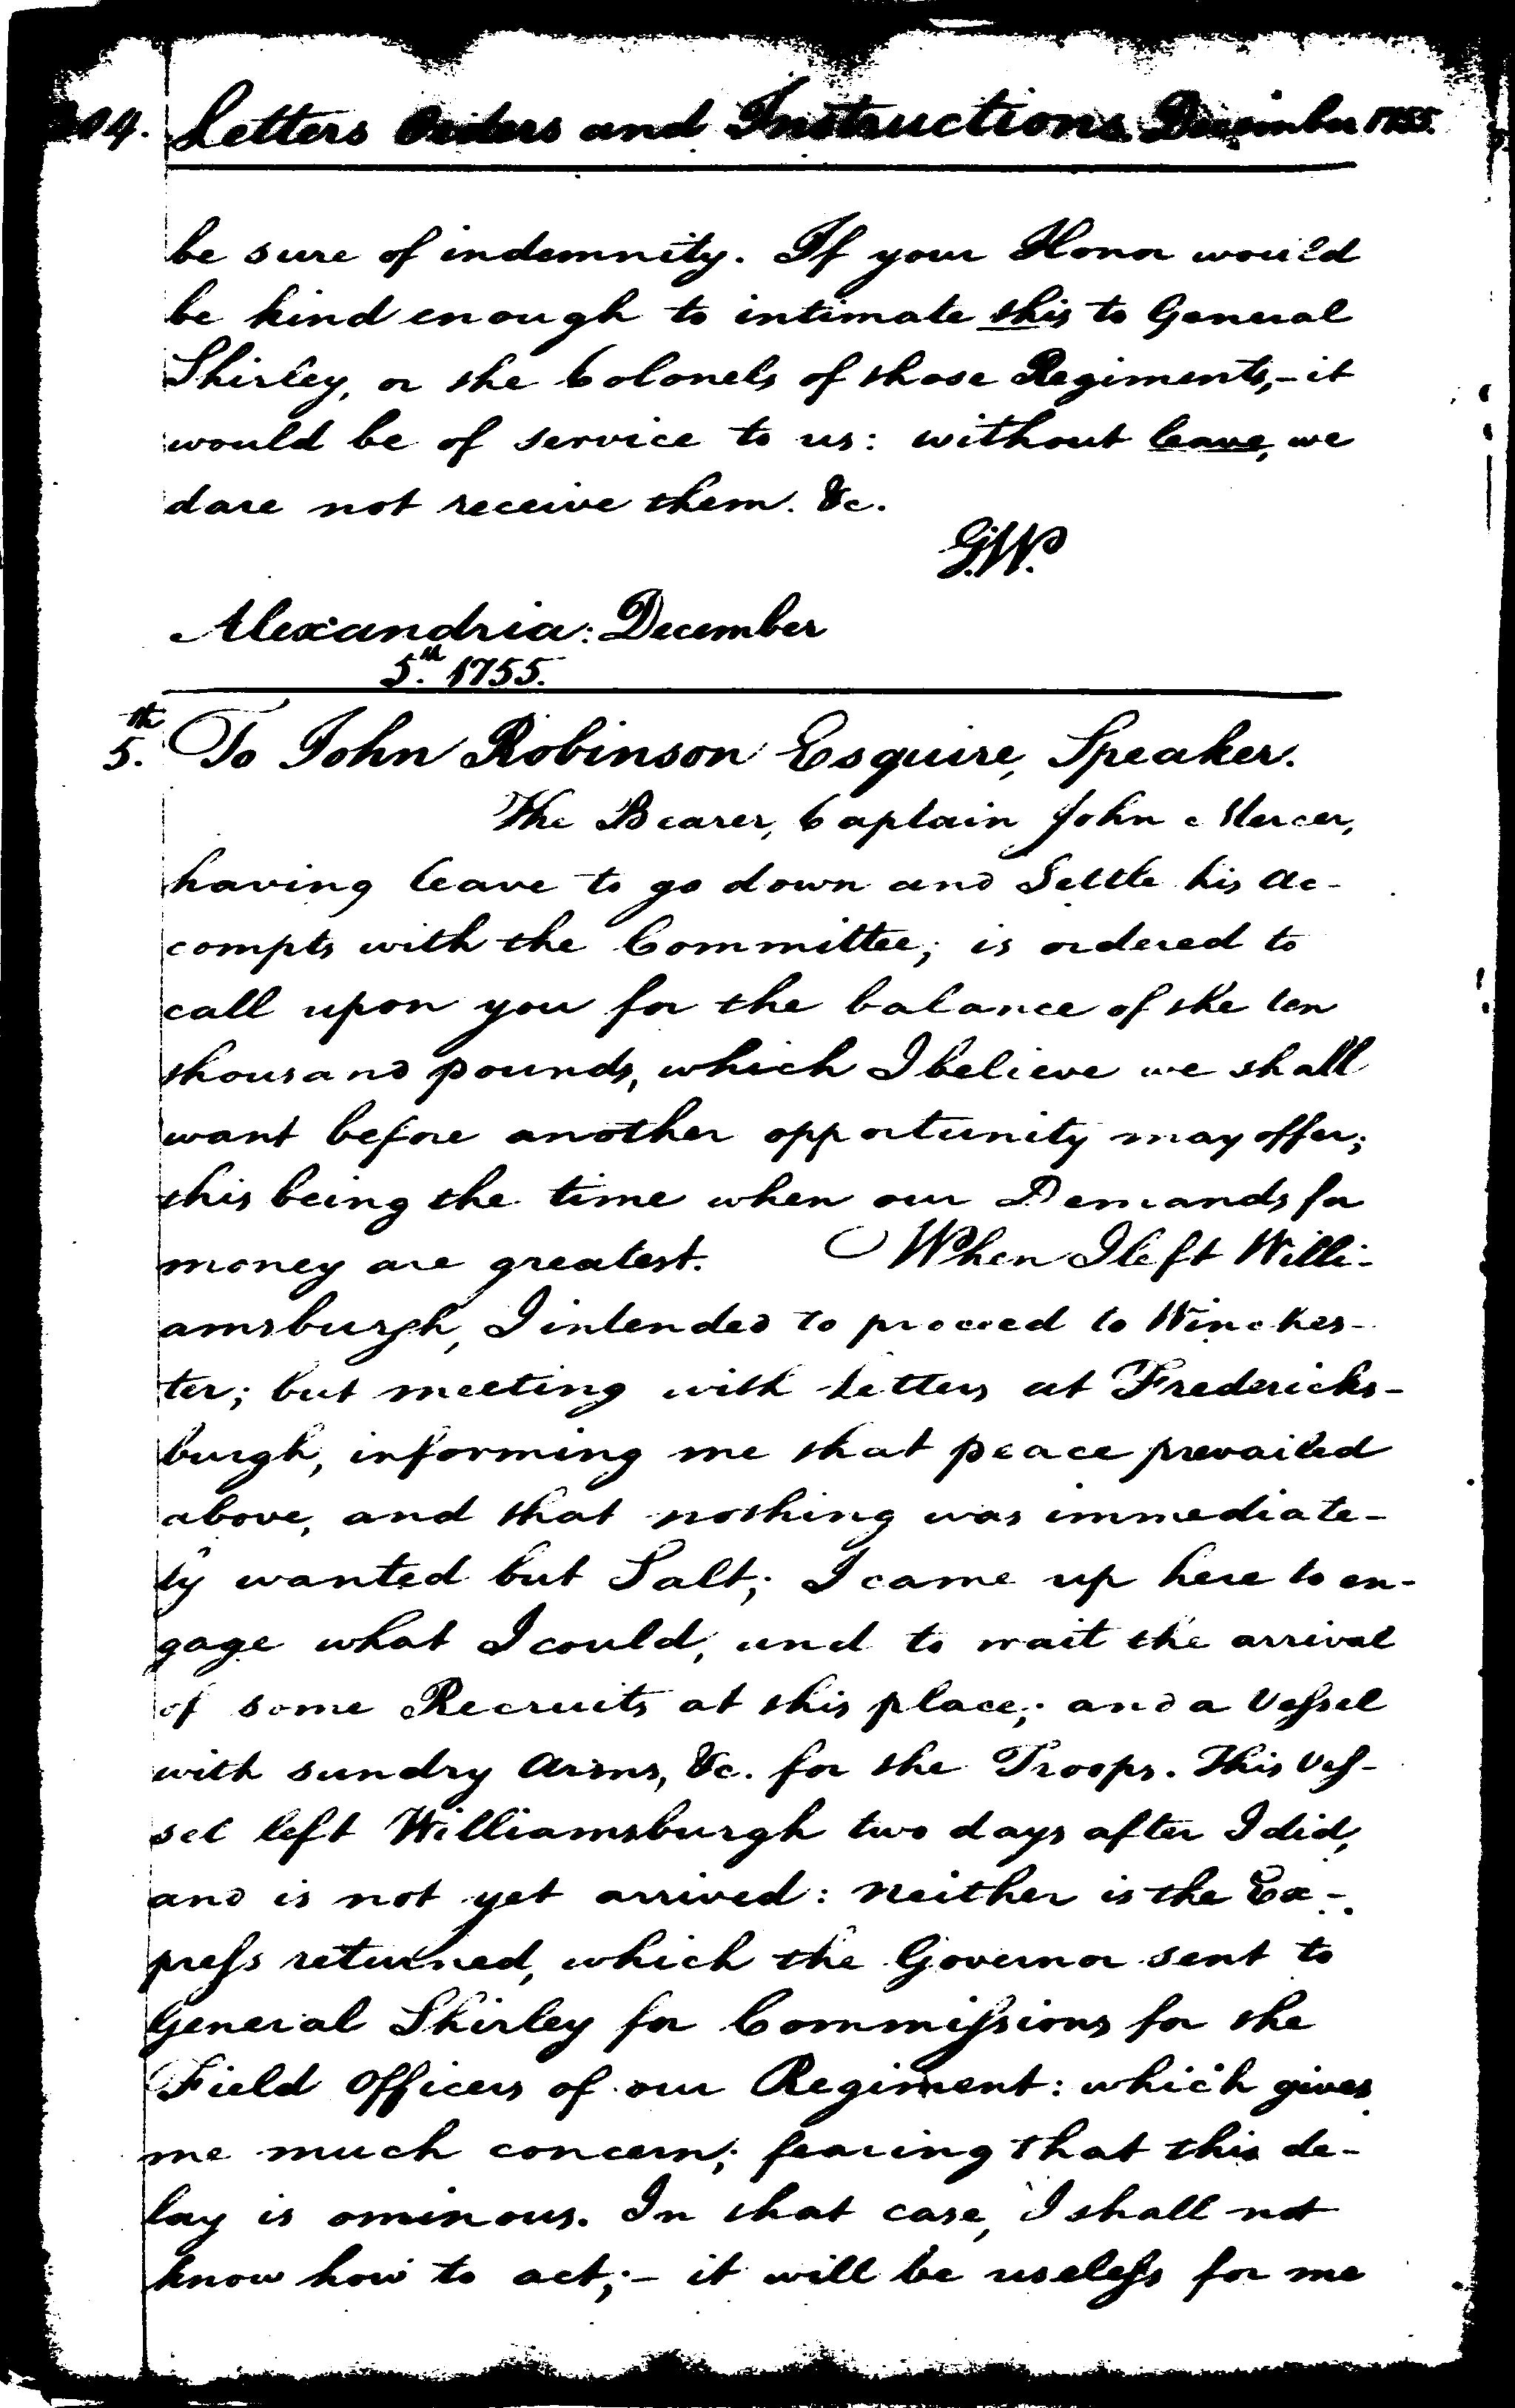 204. Letters Orders and Instructions December 1755.
be sure of indemnity. If your Honor would
be kind enough to intimate this to General
Shirley, or the Colonels of those Regiments,- it
would be of service to us: without leave, we
dare not receive them. &c.
G.W.
Alexandria: December
5th. 1755.
5th. To John Robinson Esquire, Speaker.
The Bearer, Captain John Mercer,
having leave to go down and Settle his Ac-
compts with the Committee; is ordered to
call upon you for the balance of the ten
thousand pounds, which I believe we shall
want before another opportunity may offer;
this being the time when our Demands for
money are greatest. When I left Willi-
amsburgh, I intended to proceed to Winches-
ter; but meeting with Letters at Fredericks-
burgh, informing me that peace prevailed
above, and that nothing was immediate-
ly wanted but Salt; I came up here to en-
gage what I could, and to wait the arrival
of some Recruits at this place; and a Vessel
with sundry Arms, &c. for the Troops. This Ves-
sel left Williamsburgh two days after I did,
and is not yet arrived: neither is the Ex-
press returned, which the Governor sent to
General Shirley for Commissions for the
Field Officers of our Regiment: which gives
me much concern; fearing that this de-
lay is ominous. In that case, I shall not
know how to act;- it will be useless for me